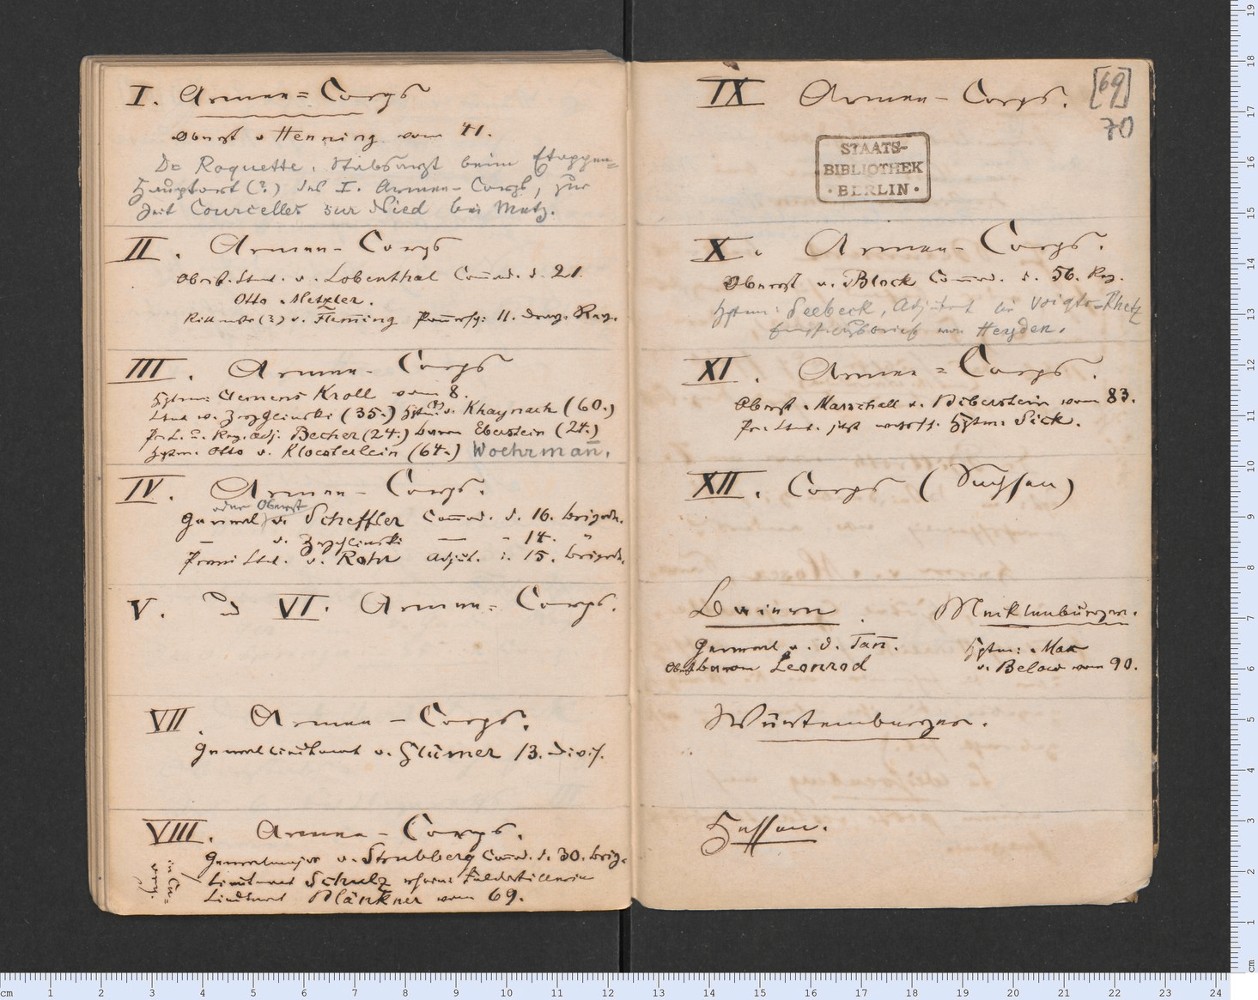 I. Armee=Corps
Oberst v Henning vom 41.
Dr Roquette, Stabsarzt beim Etappen=
Hauptort (?) des I. Armee-Corps, zur
Zeit Courcelles sur Nied bei Metz.
II. Armee-Corps
Obrstl. v. Lobenthal Comd. d. 21
Otto Metzler.
Rittmstr (?) v. Flemming Pomersch. 11. Drag. Reg.
III. Armee-Corps
Hptm: Clemens Kroll vom 8.
v. Zyglinski (35.) Hptm. v. Khaynach (60.)
Pr. L. u. Reg. adj. Becher (24.) baron Eberstein (24.)
Hptm. Otto v. Kloesterlein (64.) Woehrman̄.
IV. Armee-Corps.
oder Oberst
General v. Scheffler Com̄d. d. 16. brigade.
v. Zychlinski — - 14. "
Premi Lieut. v. Rohr adjut. d. 15. brigade.
V. und VI. Armee-Corps.
VII. Armee-Corps.
Generallieutenant v. Glümer 13. Divis.
VIII. Armee-Corps.
Generalmajor v. Strubberg Com̄d. d. 30. brig.
Lieutenant Schulz Feldartillerie
Lieutenant Blänkner vom 69.
IX Armee-Corps.
[69]
70
STAATS-
BIBLIOTHEK
· BERLIN ·
X. Armee-Corps.
Oberst v. Block Com̄d. d. 56. Reg.
Hptm: Seebeck, Adjutant bei Voigts-Rhetz
von Heyden.
XI. Armee=Corps.
Oberst Marschall v. Biberstein vom 83.
Pr. Lieut. jetzt Hptm. Sick.
XII. Corps (Sachsen)
Baiern. Mecklenburger.
General v. d. Tan̄. Hptm: Max
Obrst baron Leonrod v. Below vom 90.
Würtemburger.
Hessen.